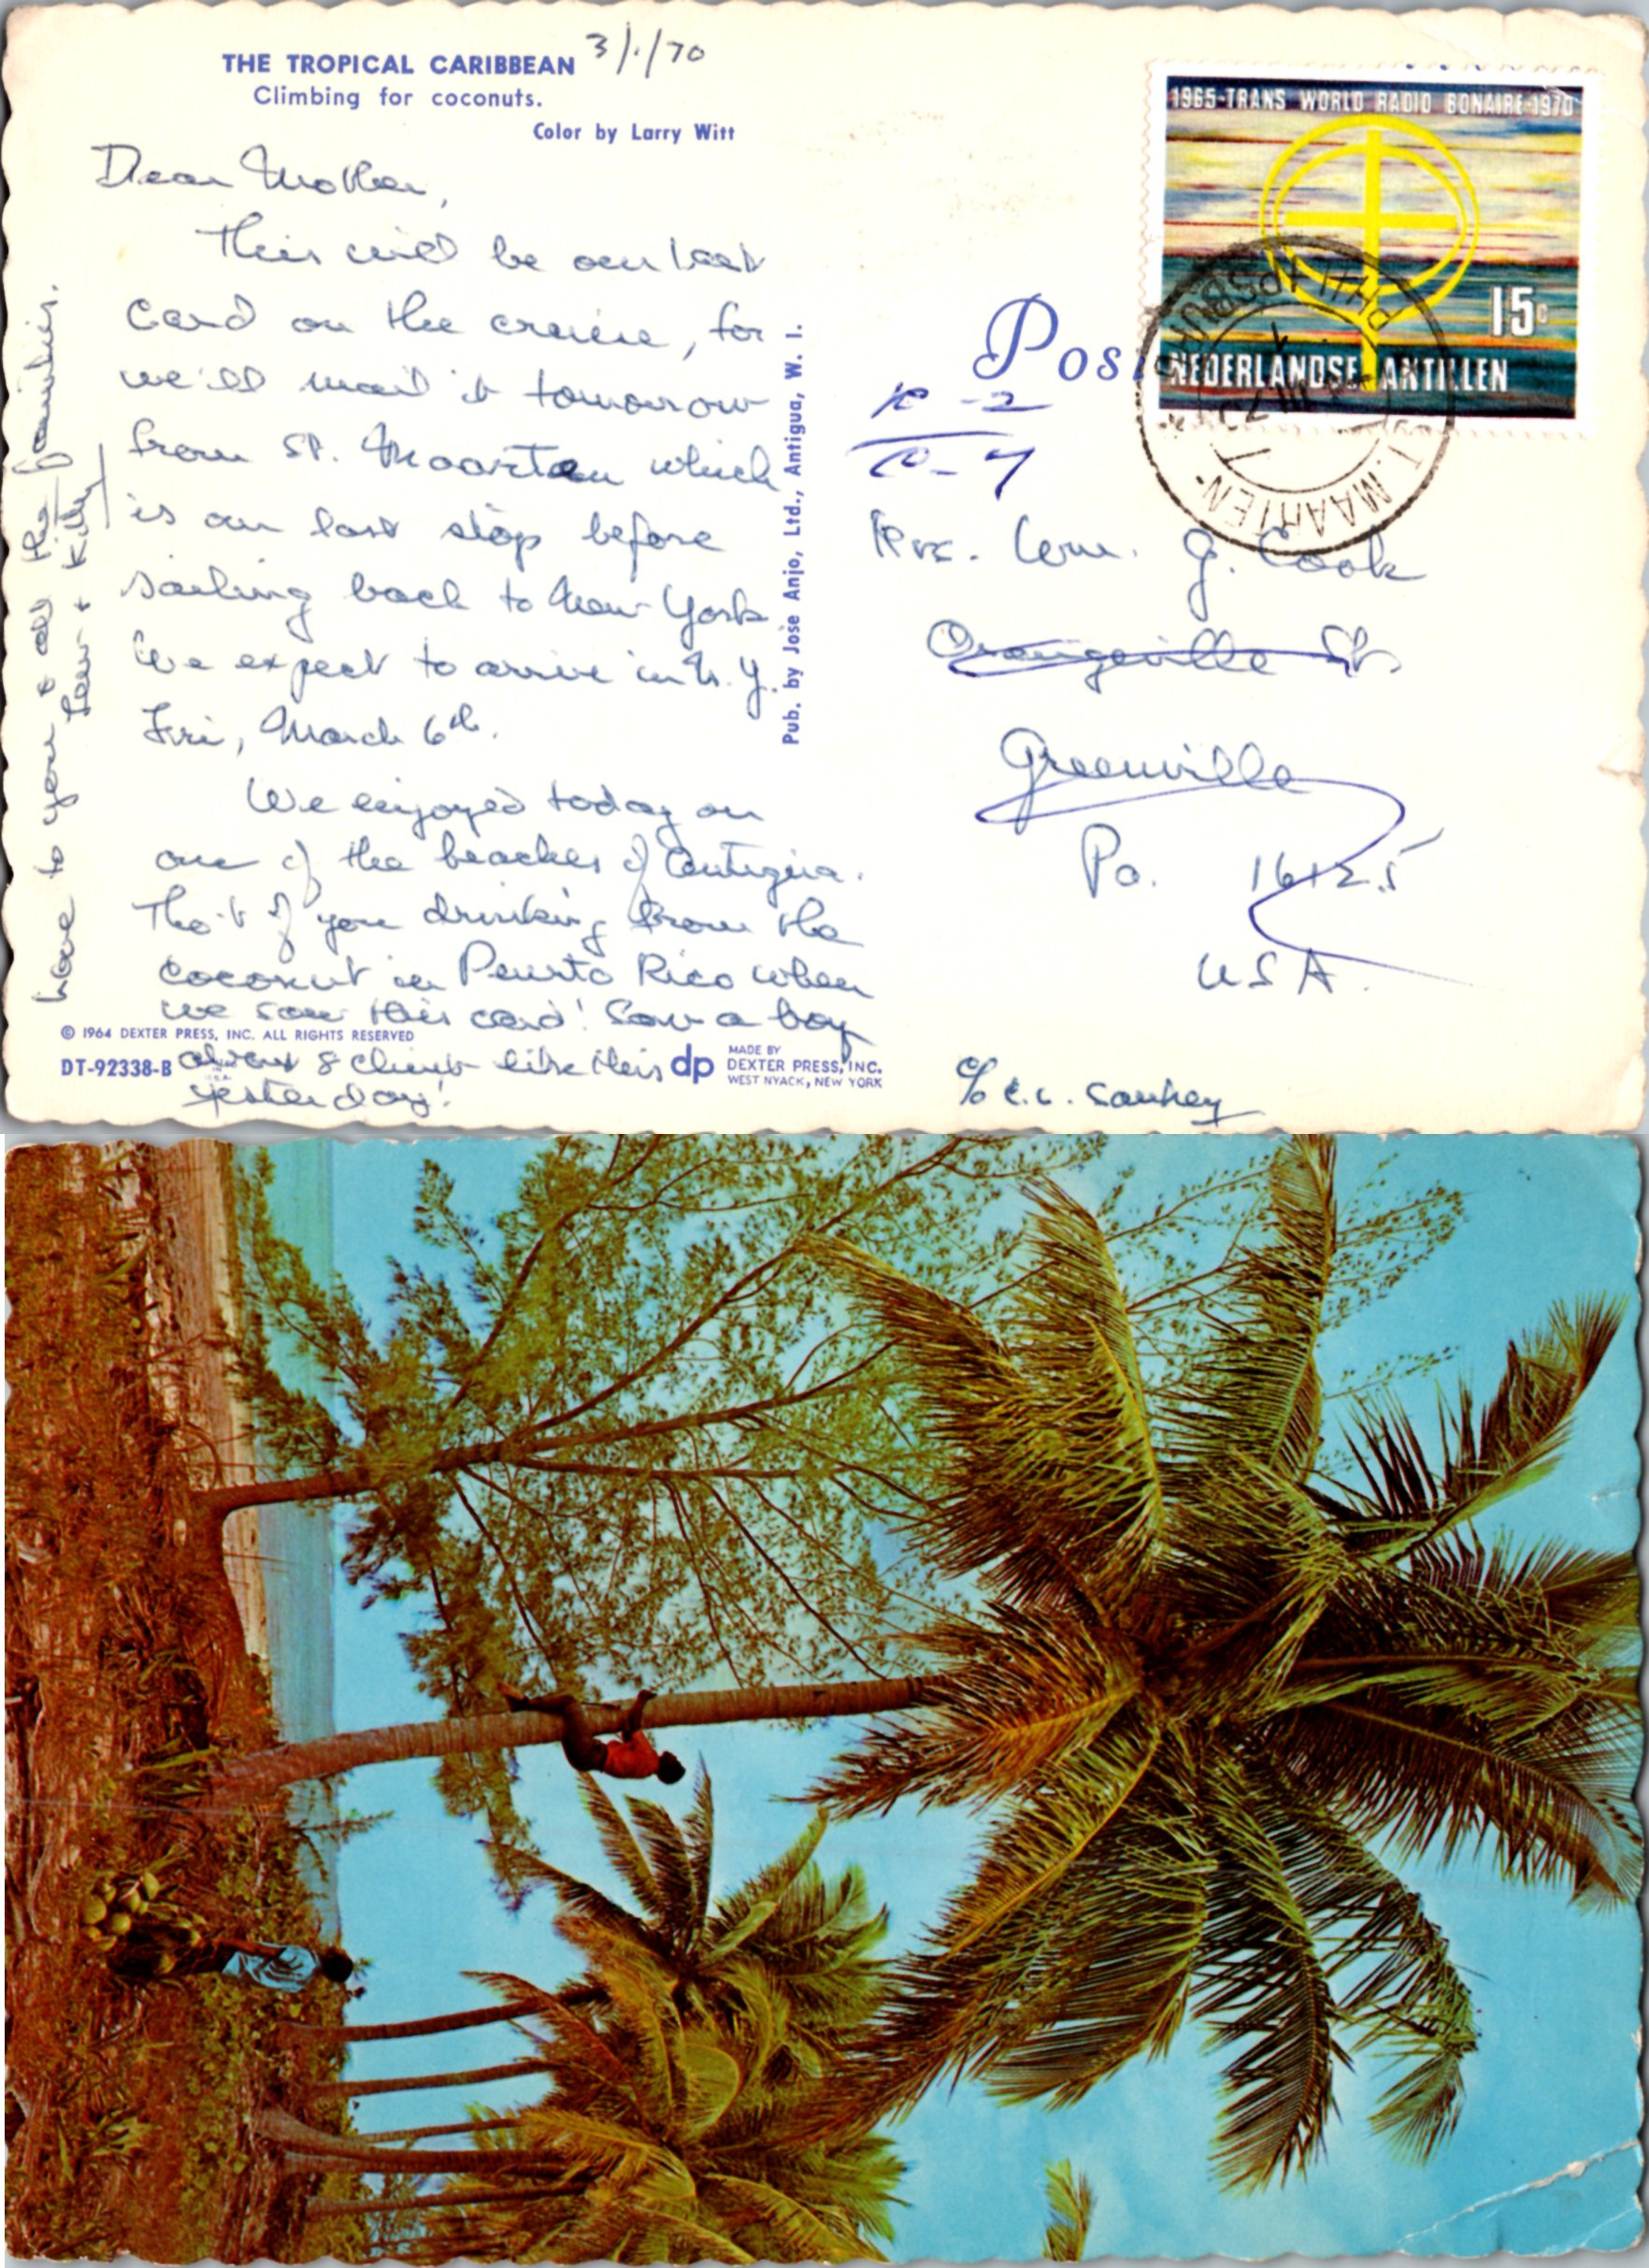 THE TROPICAL CARIBBEAN
Climbing for coconuts.
Color by Larry Witt
3/1/70
Dear Mother,
This will be our last
card on the cruise, for
we'll mail it tomorrow
from St. Maarten which
is our last stop before
sailing back to New York
We expect to arrive in N.Y.
Fri, March 6th.
We enjoyed today on
one of the beaches of Antigua.
Tho't of you drinking from the
coconut in Peurto Rico when
we saw this card! Saw a boy
about 8 climb like this
yesterday!
Love to you & all the families.
Lew & Kitty
© 1964 DEXTER PRESS, INC. ALL RIGHTS RESERVED
DT-92338-B
dp
MADE BY
DEXTER PRESS, INC.
WEST NYACK, NEW YORK
Pub. by Jose Anjo, Ltd., Antigua, W. I.
Pos
1965-TRANS WORLD RADIO BONAIRE-1970
15c
NEDERLANDSE ANTILLEN
PHILIPSBURG
ST. MAARTEN
R-2
Mrs. Wm. J. Cook
Orangeville St.
Greenville
Pa. 16125
USA.
c/o